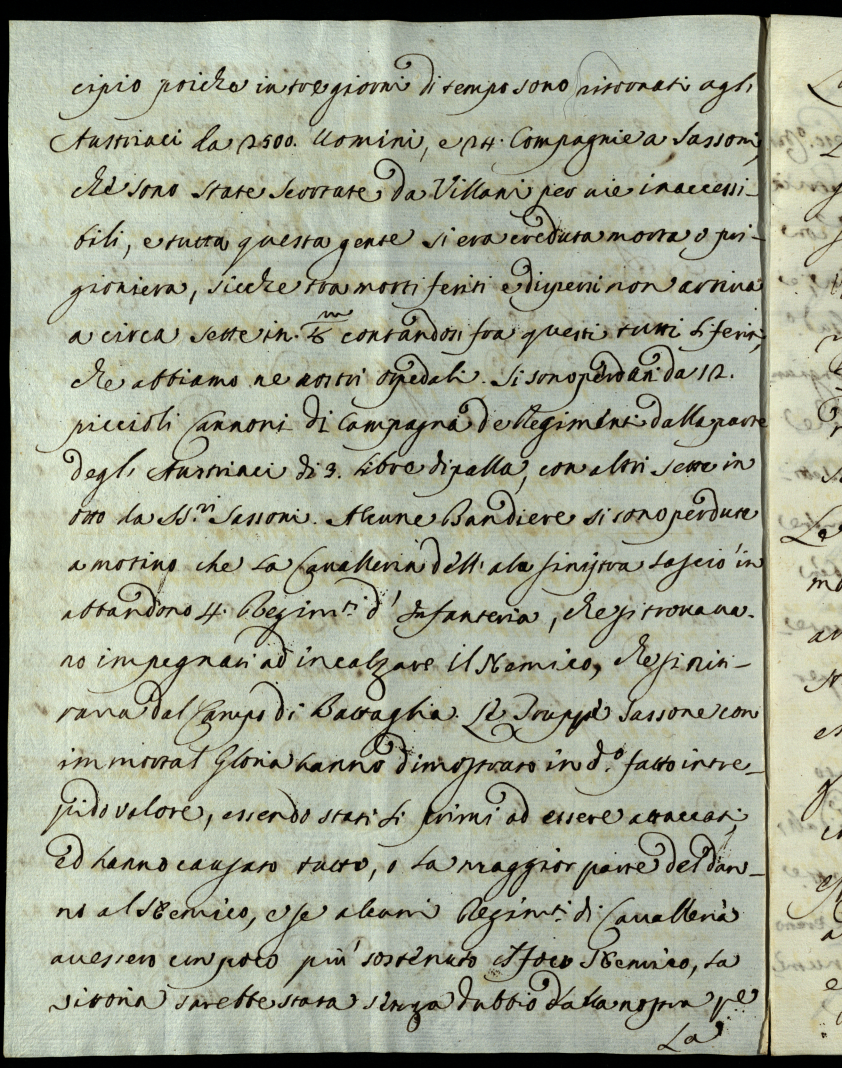 cipio poiche in tre giorni di tempo sono ritornati agli
Austriaci da 2500. Uomini, e 24. Compagnie a Sassoni,
che sono state scortate da Villani per vie inaccessi-
bili, e tutta questa gente si era creduta morta o pri-
gioniera, sicche tra morti feriti e dispersi non arriva
a circa sette in m/8 contandosi fra questi tutti li feriti,
che abbiamo ne nostri Ospedali. Si sono perduti da 12.
piccioli Cannoni di Campagna de Regimenti dalla parte
degli Austriaci di 3. libre di palla, con altri sette in
otto da SS.ri Sassoni. Alcune Bandiere si sono perdute
a motivo che la Cavalleria dell' ala sinistra lasciò in
abbandono 4. Regim.ti d' Infanteria, che si trovava-
no impegnati ad incalzare il Nemico, che si riti-
rava dal Campo di Battaglia. Le Truppe Sassone con
immortal Gloria hanno dimostrato in d.o fatto intre-
pido valore, essendo stati li primi ad essere attaccati,
ed hanno causato tutto, o la maggior parte del dan-
no al Nemico, e se alcuni Regim.ti di Cavalleria
avessero un poco più sostenuto il foco Nemico, la
vitoria sarebbe stata senza dubbio dalla nostra p.e
La